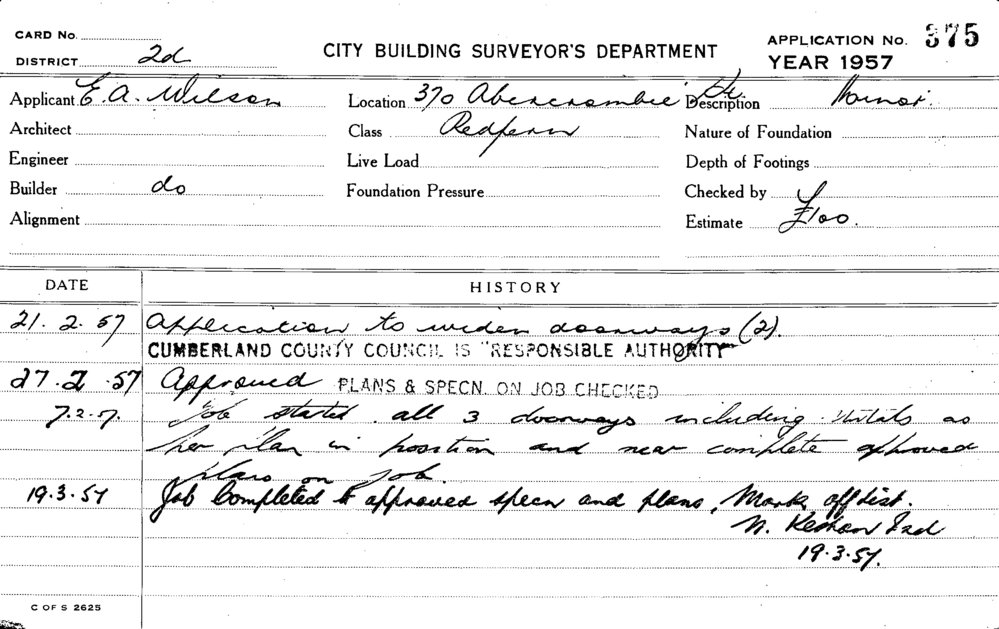 CARD No.
DISTRICT 2d
CITY BUILDING SURVEYOR'S DEPARTMENT
APPLICATION No. 375
YEAR 1957
Applicant E. A. Wilson
Location 370 Abercrombie St
Description Minor.
Architect
Class Redfern
Nature of Foundation
Engineer
Live Load
Depth of Footings
Builder do
Foundation Pressure
Checked by
Alignment
Estimate £100.
DATE
HISTORY
21. 2. 57 Application to widen doorways (2).
CUMBERLAND COUNTY COUNCIL IS "RESPONSIBLE AUTHORITY"
27. 2. 57 Approved PLANS & SPECN. ON JOB CHECKED
7.2.57. Job started. all 3 doorways including lintols as
per plan in position and near complete approved
plans on job.
19.3.57 Job Completed to approved specn and plans, Mark off list.
19.3.57.
C OF S 2625